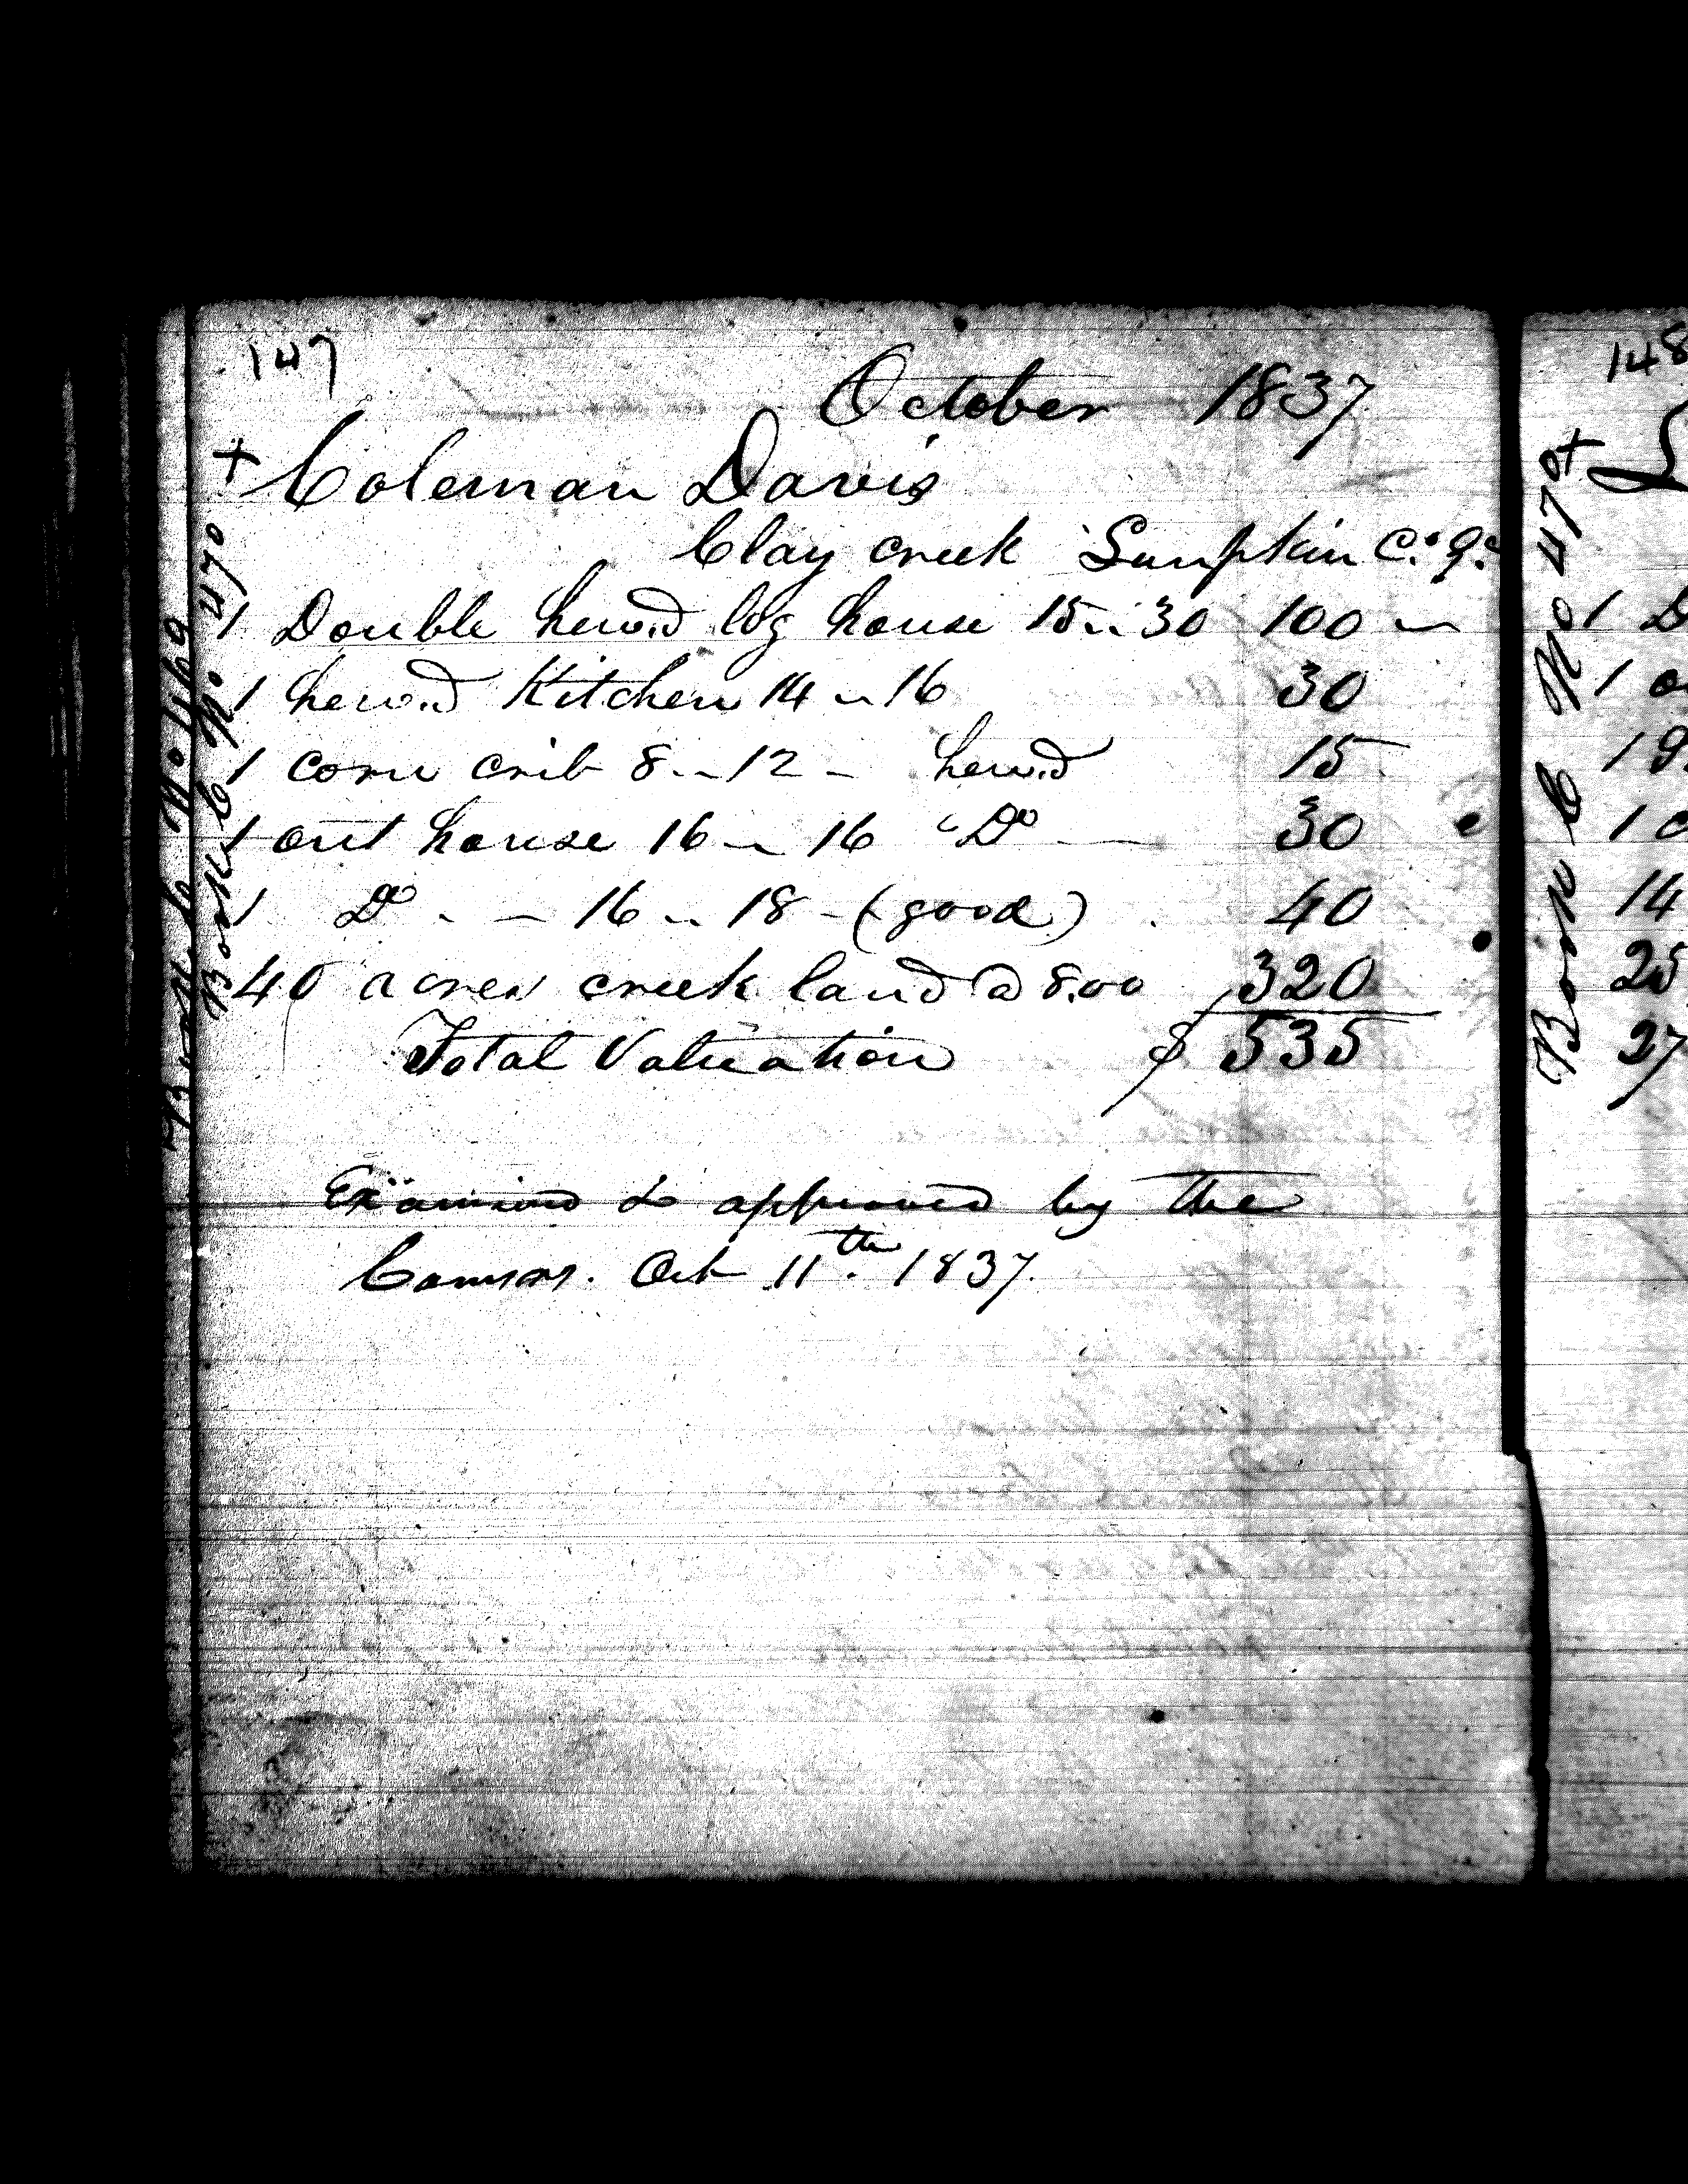 147
October 1837
+ Coleman Davis
Clay creek Lumpkin Co. Ga
1 Double hew.d log house 15 .. 30 100 —
1 hew.d Kitchen 14 .. 16 30
1 corn crib 8 .. 12 - hew.d 15
1 out house 16 .. 16 " Do — 30
1 Do - - 16 .. 18 - (good) 40
40 acres creek land @ 8.00 320
Total Valuation $ 535
Examined & approved by the
Commrs. Oct 11th. 1837.
Book C No 470
Book C No 469
148
Book C No 470 +
1 D
1
1 9
1 c
14
25
27